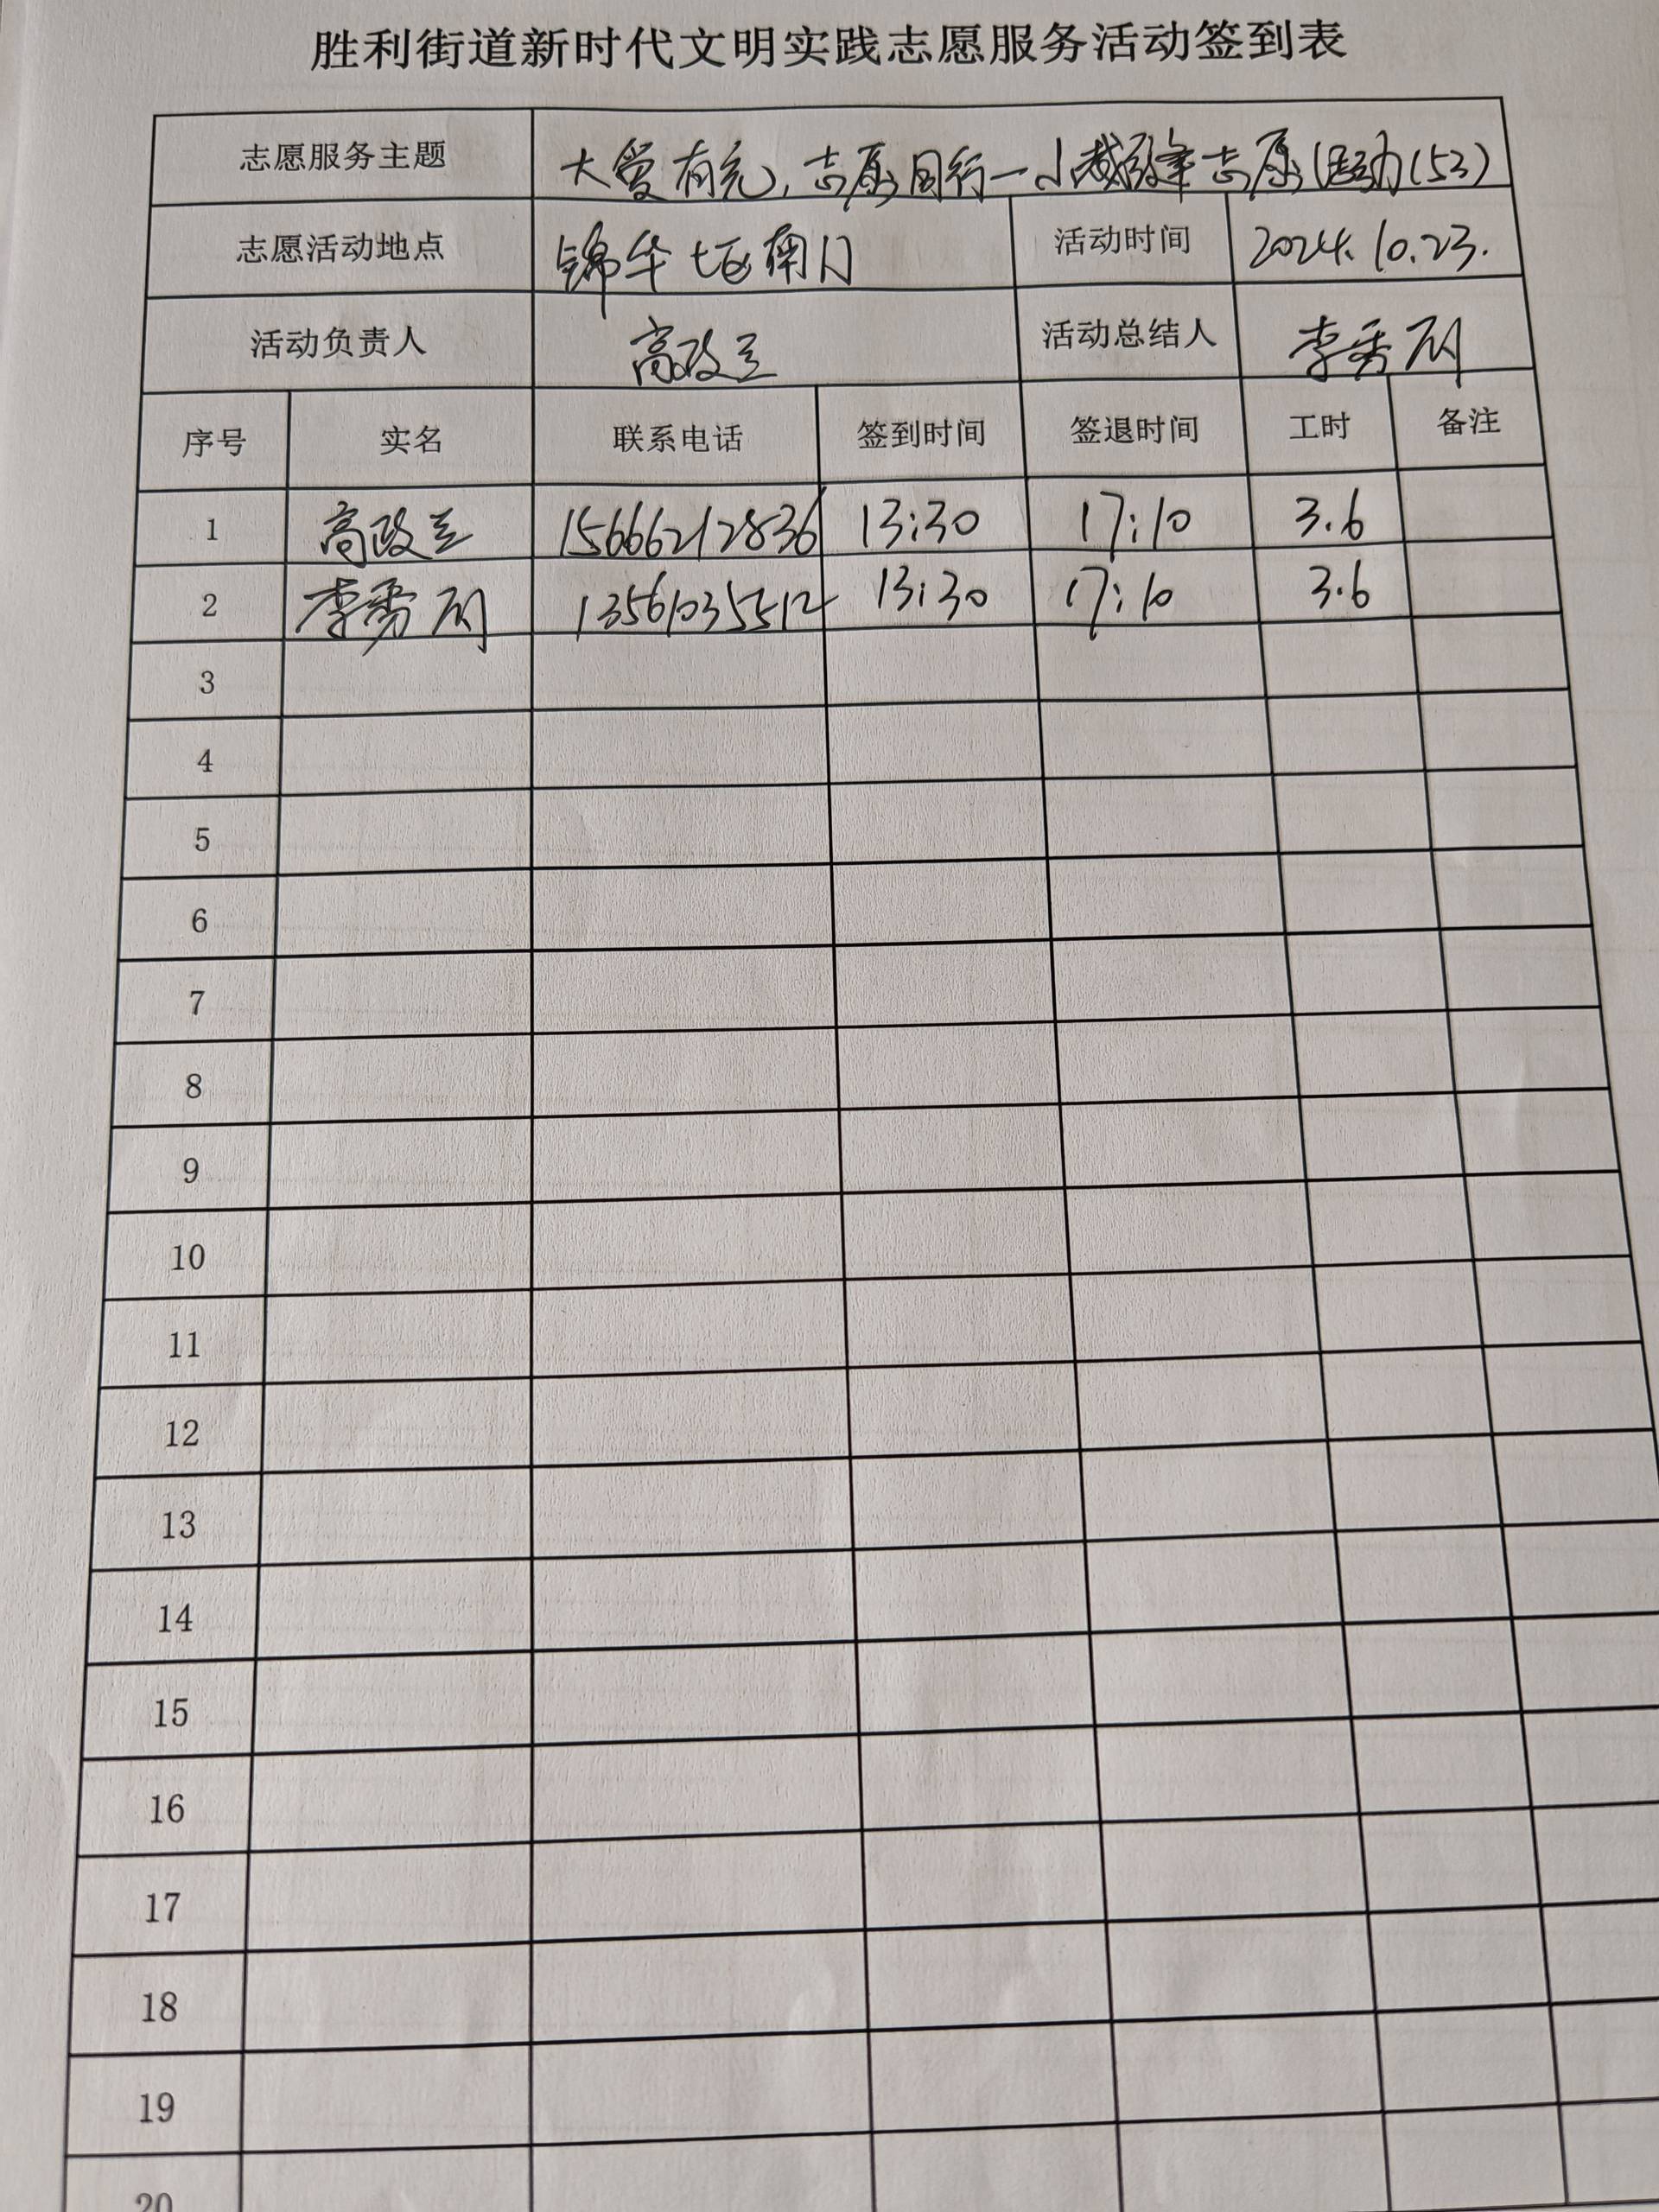 胜利街道新时代文明实践志愿服务活动签到表
志愿服务主题 大爱有充,志愿同行一小裁缝志愿活动(53)
志愿活动地点 锦华七区南门 活动时间 2024.10.23.
活动负责人 高政兰 活动总结人 李秀丽
序号 实名 联系电话 签到时间 签退时间 工时 备注
1 高政兰 15666212836 13:30 17:10 3.6
2 李秀丽 13561035512 13:30 17:10 3.6
3
4
5
6
7
8
9
10
11
12
13
14
15
16
17
18
19
20